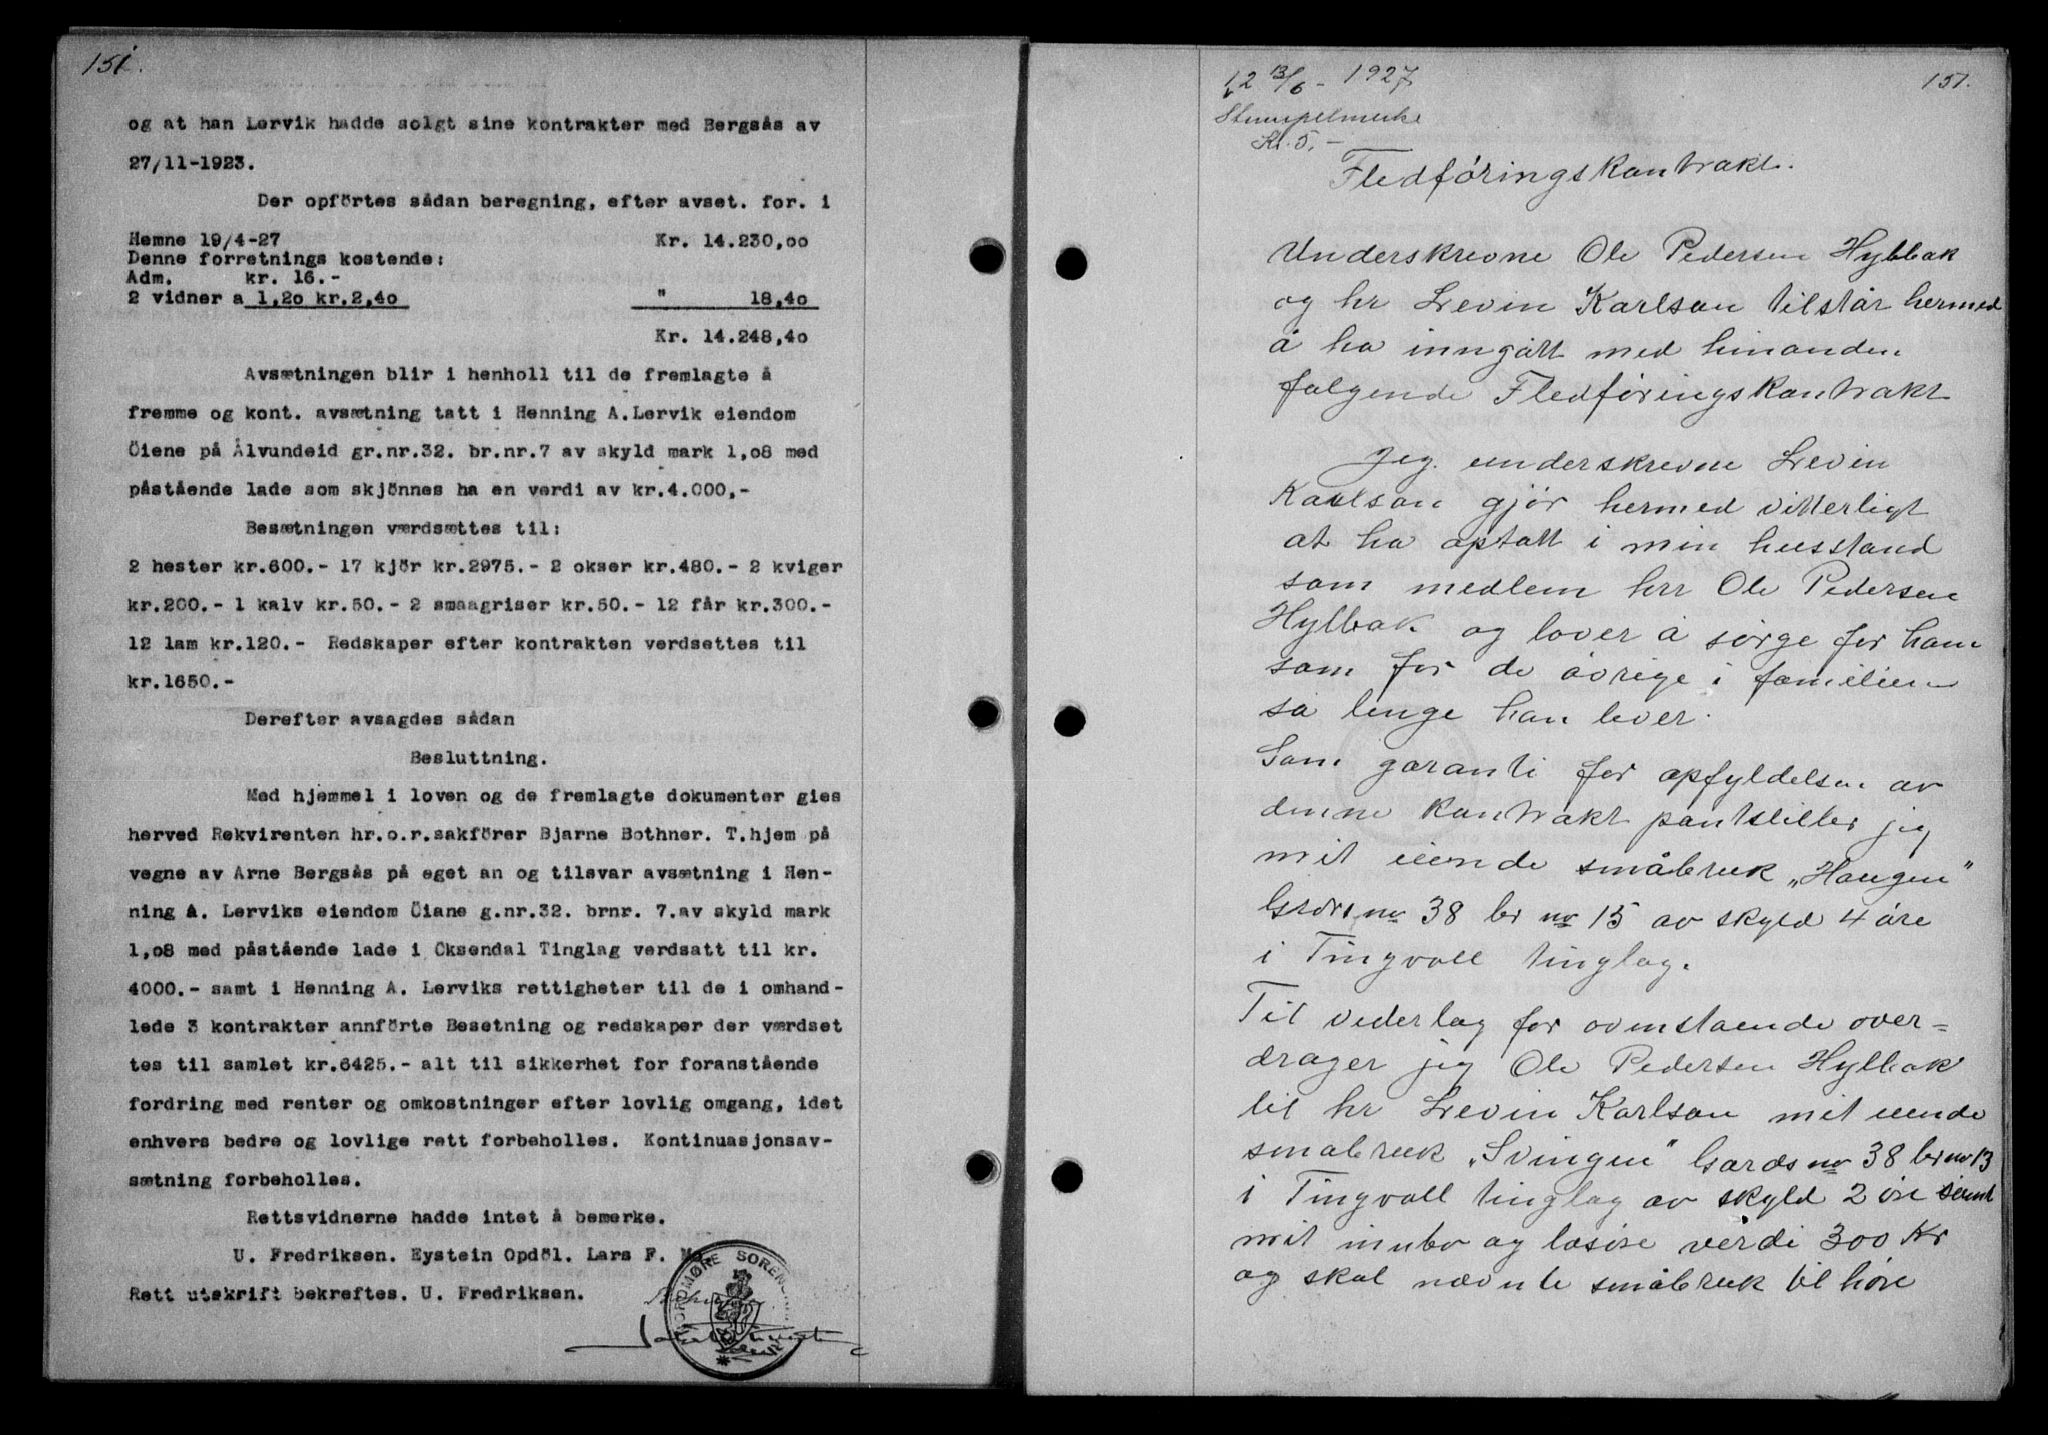 151.
og at han Lervik hadde solgt sine kontrakter med Bergsås av
27/11-1923.
Der opförtes sådan beregning, efter avset. for. i
Hemne 19/4-27 Kr. 14.230,oo
Denne forretnings kostende:
Adm. kr. 16.-
2 vidner a 1,2o kr.2,4o " 18,4o
Kr. 14.248,4o
Avsætningen blir i henholl til de fremlagte å
fremme og kont. avsætning tatt i Henning A.Lervik eiendom
Öiene på Ålvundeid gr.nr.32. br.nr.7 av skyld mark 1,o8 med
påstående lade som skjönnes ha en verdi av kr.4.000,-
Besætningen værdsættes til:
2 hester kr.600.- 17 kjör kr.2975.- 2 okser kr.480.- 2 kviger
kr.200.- 1 kalv kr.50.- 2 smaagriser kr.50.- 12 får kr.300.-
12 lam kr.120.- Redskaper efter kontrakten verdsettes til
kr.1650.-
Derefter avsagdes sådan
Besluttning.
Med hjemmel i loven og de fremlagte dokumenter gies
herved Rekvirenten hr.o.r.sakförer Bjarne Bothner. T.hjem på
vegne av Arne Bergsås på eget an og tilsvar avsætning i Hen-
ning A. Lerviks eiendom Öiane g.nr.32. brnr. 7.av skyld mark
1,o8 med påstående lade i Oksendal Tinglag verdsatt til kr.
4000.- samt i Henning A. Lerviks rettigheter til de i omhand-
lede 3 kontrakter annförte Besetning og redskaper der værdset
tes til samlet kr.6425.- alt til sikkerhet for foranstående
fordring med renter og omkostninger efter lovlig omgang, idet
enhvers bedre og lovlige rett forbeholles. Kontinuasjonsav-
sætning forbeholles.
Rettsvidnerne hadde intet å bemerke.
U. Fredriksen. Eystein Opdöl. Lars F. Mo
Rett utskrift bekreftes. U. Fredriksen.
NORDMØRE SOREN
12 13/6 - 1927 151.
Stempelmerke
Kr. 5.-
Fledføringskontrakt.
Underskrevne Ole Pedersen Hylbak
og hr Levin Karlson tilstår hermed
å ha inngått med hinanden
følgende Fledføringskontrakt
Jeg underskrevne Levin
Karlson gjør hermed vitterligt
at ha optatt i min husstand
som medlem hrr Ole Pedersen
Hylbak og lover å sørge for ham
som for de øvrige i familien
så lenge han lever.
Som garanti for opfyldelsen av
denne kontrakt pantstiller jeg
mit eiende småbruk „Haugen"
Gards no 38 br no 15 av skyld 4 øre
i Tingvoll tinglag.
Til vederlag for ovenstaende over=
drager jeg Ole Pedersen Hylbak
til hr Levin Karlson mit eiende
småbruk „Svingen" Gards no 38 br no 13
i Tingvoll tinglag av skyld 2 øre samt
mit innbo og løsøre verdi 300 Kr
og skal nævnte småbruk tilhøre